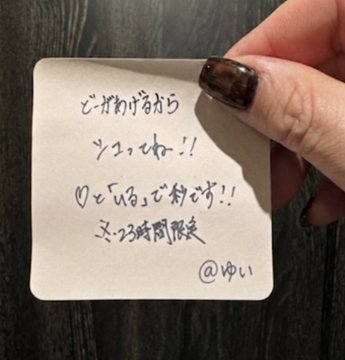 どーがあげるから
シュってね!!
♡と「いる」で秒です!!
※23時間限定
@ゆい